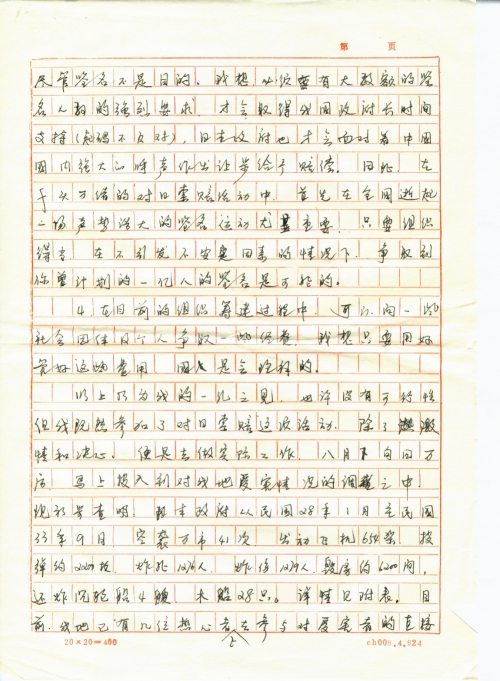 第 页
尽管签名不是目的。我想必须要有大数额的签
名人数的强烈要求，才会取得我国政府长时间
支持（起码不反对），日本政府也才会面对着中国
国内强大的呼声作出让步给予赔偿。因此，在
千头万绪的对日索赔活动中，首先在全国逝起
一场声势浩大的签名运动尤重要，只要组织
得当，在不引发不安定因素的情况下，争取到
你曾计划的一亿人的签名是可能的。
4.在目前的组织筹建过程中，可以向一些
社会团体及个人争取一些经费，我想只要用好
管好这些费用，国人是会理解的。
以上仅为我的一孔之见，也许没有可行性
但我既然参加了对日索赔这次活动，除了激
情和决心，便是去做实际工作。八月下旬回万
后，马上投入到对我地受害情况的调查之中。
现初步查明，日本政府从民国28年1月至民国
33年9月，空袭万市41次，出动飞机655架，投
弹约2000枚，炸死1276人，炸伤1279人，毁房约6200间，
还炸沉轮船4艘，木船28只。详情见附表。目
前，我地已有几位热心者在参与对受害者的直接
20×20=400 ch006.4.924